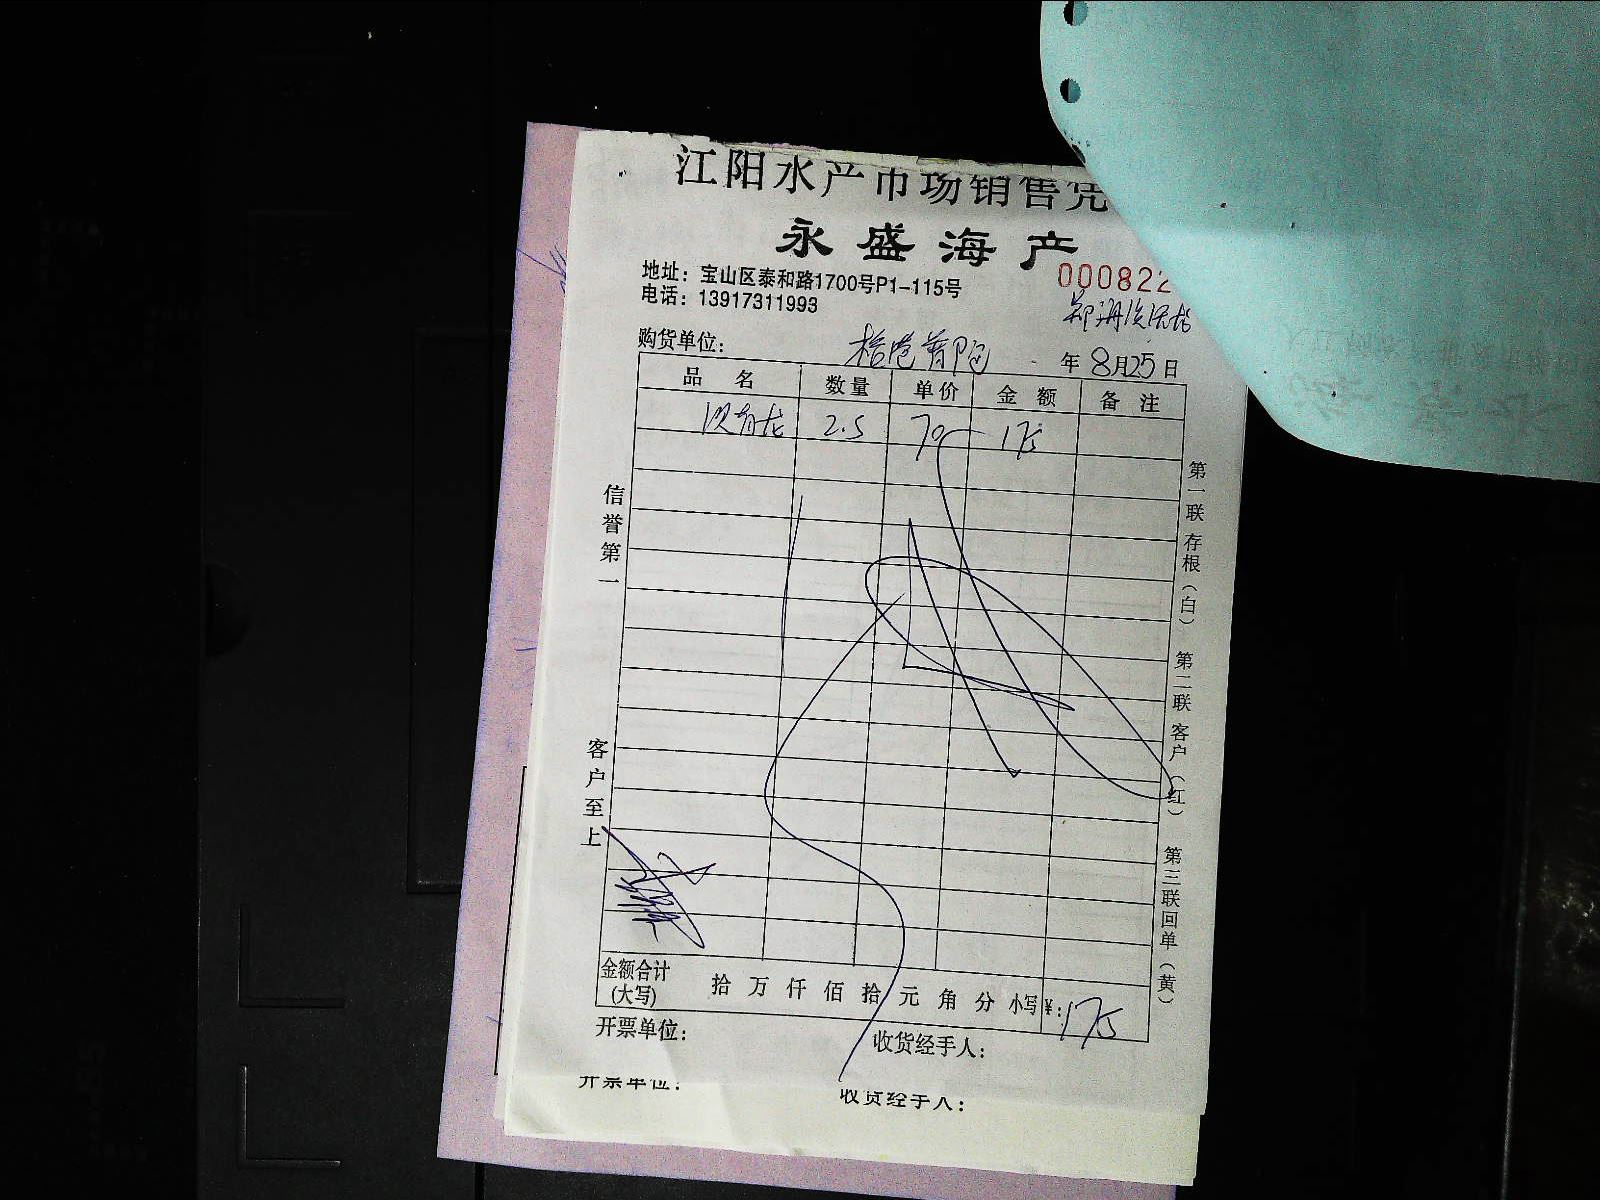 江阳水产市场销售凭
永盛海产
地址：宝山区泰和路1700号P1-115号
电话：13917311993
000822
购货单位：
年8月25日
品名 数量 单价 金额 备注
2.5 70 175
信誉第一
客户至上
第一联存根（白） 第二联客户（红） 第三联回单（黄）
金额合计（大写） 拾万仟佰拾元角分 小写¥：175
开票单位： 收货经手人：
开票单位： 收货经手人：